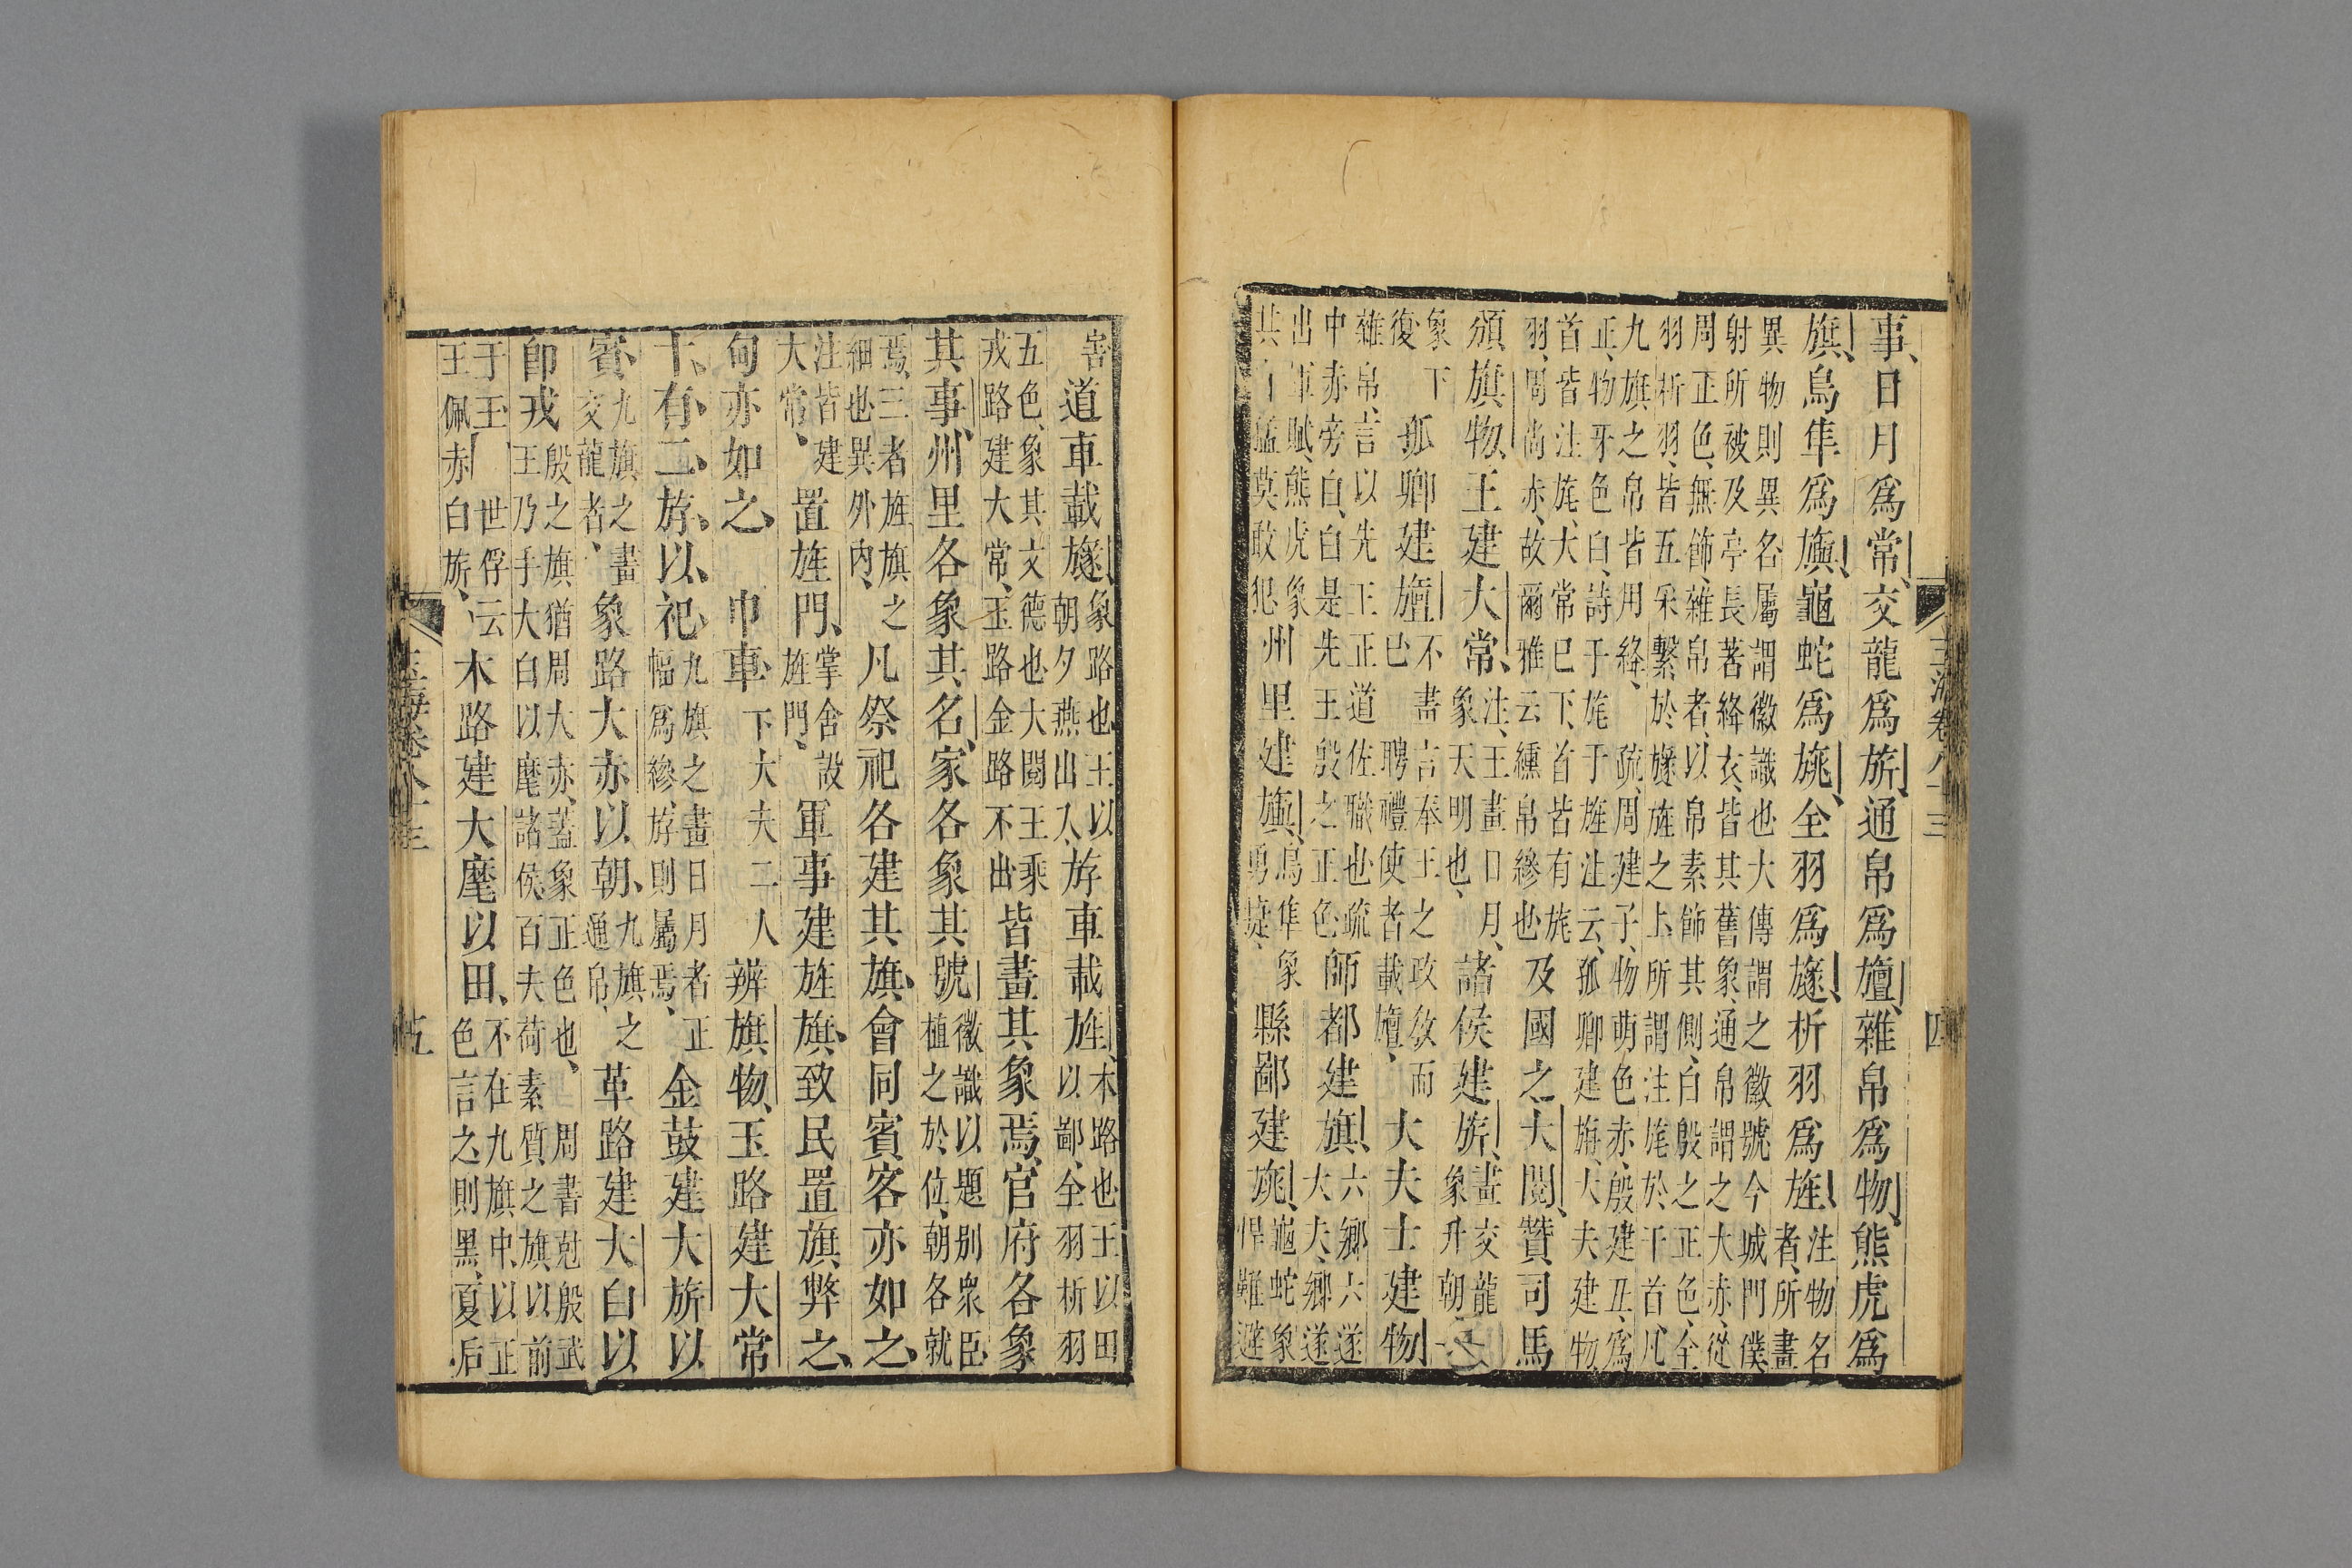 事日月爲常交龍爲旂通帛爲旜雜帛爲物熊虎爲
旗鳥隼爲旟龜蛇爲旐全羽爲旞析羽爲旌注物名
者所畫
異物則異名屬謂徽識也大傳謂之徽號今城門僕
射所被及亭長著絳衣皆其舊象通帛謂之大赤從
周正色無飾雜帛者以帛素飾其側白殷之正色全
羽析羽皆五采繫於旞旌之上所謂注旄於干首凡
九旗之帛皆用絳 疏周建子物萌色赤殷建丑爲
正物牙色白詩于旄于旌注云孤卿建旃大夫建物
首皆注旄大常巳下首皆有旄
羽周尚赤故爾雅云纁帛縿也及國之大閱贊司馬
頒旗物王建大常注王畫日月
象天明也諸侯建旂畫交龍
象升朝
象下
復孤卿建旜不畫言奉王之政敎而
巳聘禮使者載旜大夫士建物
雜帛言以先王正道佐職也疏
中赤旁白白是先王殷之正色師都建旗六鄕六遂
大夫鄕遂
出軍賦熊虎象
其 猛莫敢犯州里建旟鳥隼象
勇 縣鄙建旐龜蛇象
悍難避
玉海卷八十三
四
害道車載旞象路也王以
朝夕燕出入斿車載旌木路也王以田
以鄙全羽析羽
五色象其文德也大閱王乘
戎路建大常玉路金路不出皆畫其象焉官府各象
其事州里各象其名家各象其號徽識以題別衆臣
植之於位朝各就
焉三者旌旗之
細也異外內凡祭祀各建其旗會同賓客亦如之
注皆建
大常置旌門掌舍設
旌門軍事建旌旗致民置旗弊之
甸亦如之 巾車下大夫二人辨旗物玉路建大常
十有二斿以祀九旗之畫日月者正
幅爲縿斿則屬焉金鼓建大旂以
賓九旗之畫
交龍者象路大赤以朝九旗之
通帛革路建大白以
卽戎殷之旗猶周大赤蓋象正色也 周書尅殷武
王乃手大白以麾諸侯百夫荷素質之旗以前
于王 世俘云
王佩赤白旂木路建大麾以田不在九旗中以正
色言之則黑夏后
玉海卷八十三
五